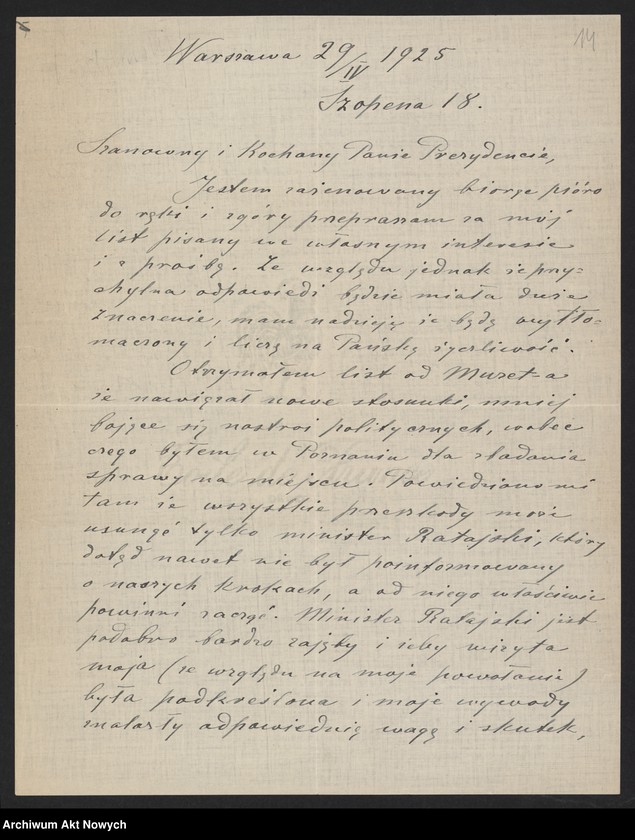 14
Warszawa 29/IV 1925
Szopena 18.
Szanowny i Kochany Panie Prezydencie,
Jestem zażenowany biorąc pióro
do ręki i zgóry przepraszam za mój
list pisany we własnym interesie
i z prośbą. Ze względu jednak że przy=
chylna odpowiedź będzie miała duże
znaczenie, mam nadzieję że będę wytło=
maczony i liczę na Pańską życzliwość.
Otrzymałem list od Muzet-a
że nawiązał nowe stosunki, mniej
bojące się nastroi politycznych, wobec
czego byłem w Poznaniu dla zbadania
sprawy na miejscu. Powiedziano mi
tam że wszystkie przeszkody może
usunąć tylko minister Ratajski, który
dotąd nawet nie był poinformowany
o naszych krokach, a od niego właściwie
powinni zacząć. Minister Ratajski jest
podobno bardzo zajęty i żeby wizyta
moja (ze względu na moje powołanie)
była podkreślona i moje wywody
znalazły odpowiednią wagę i skutek,
Archiwum Akt Nowych